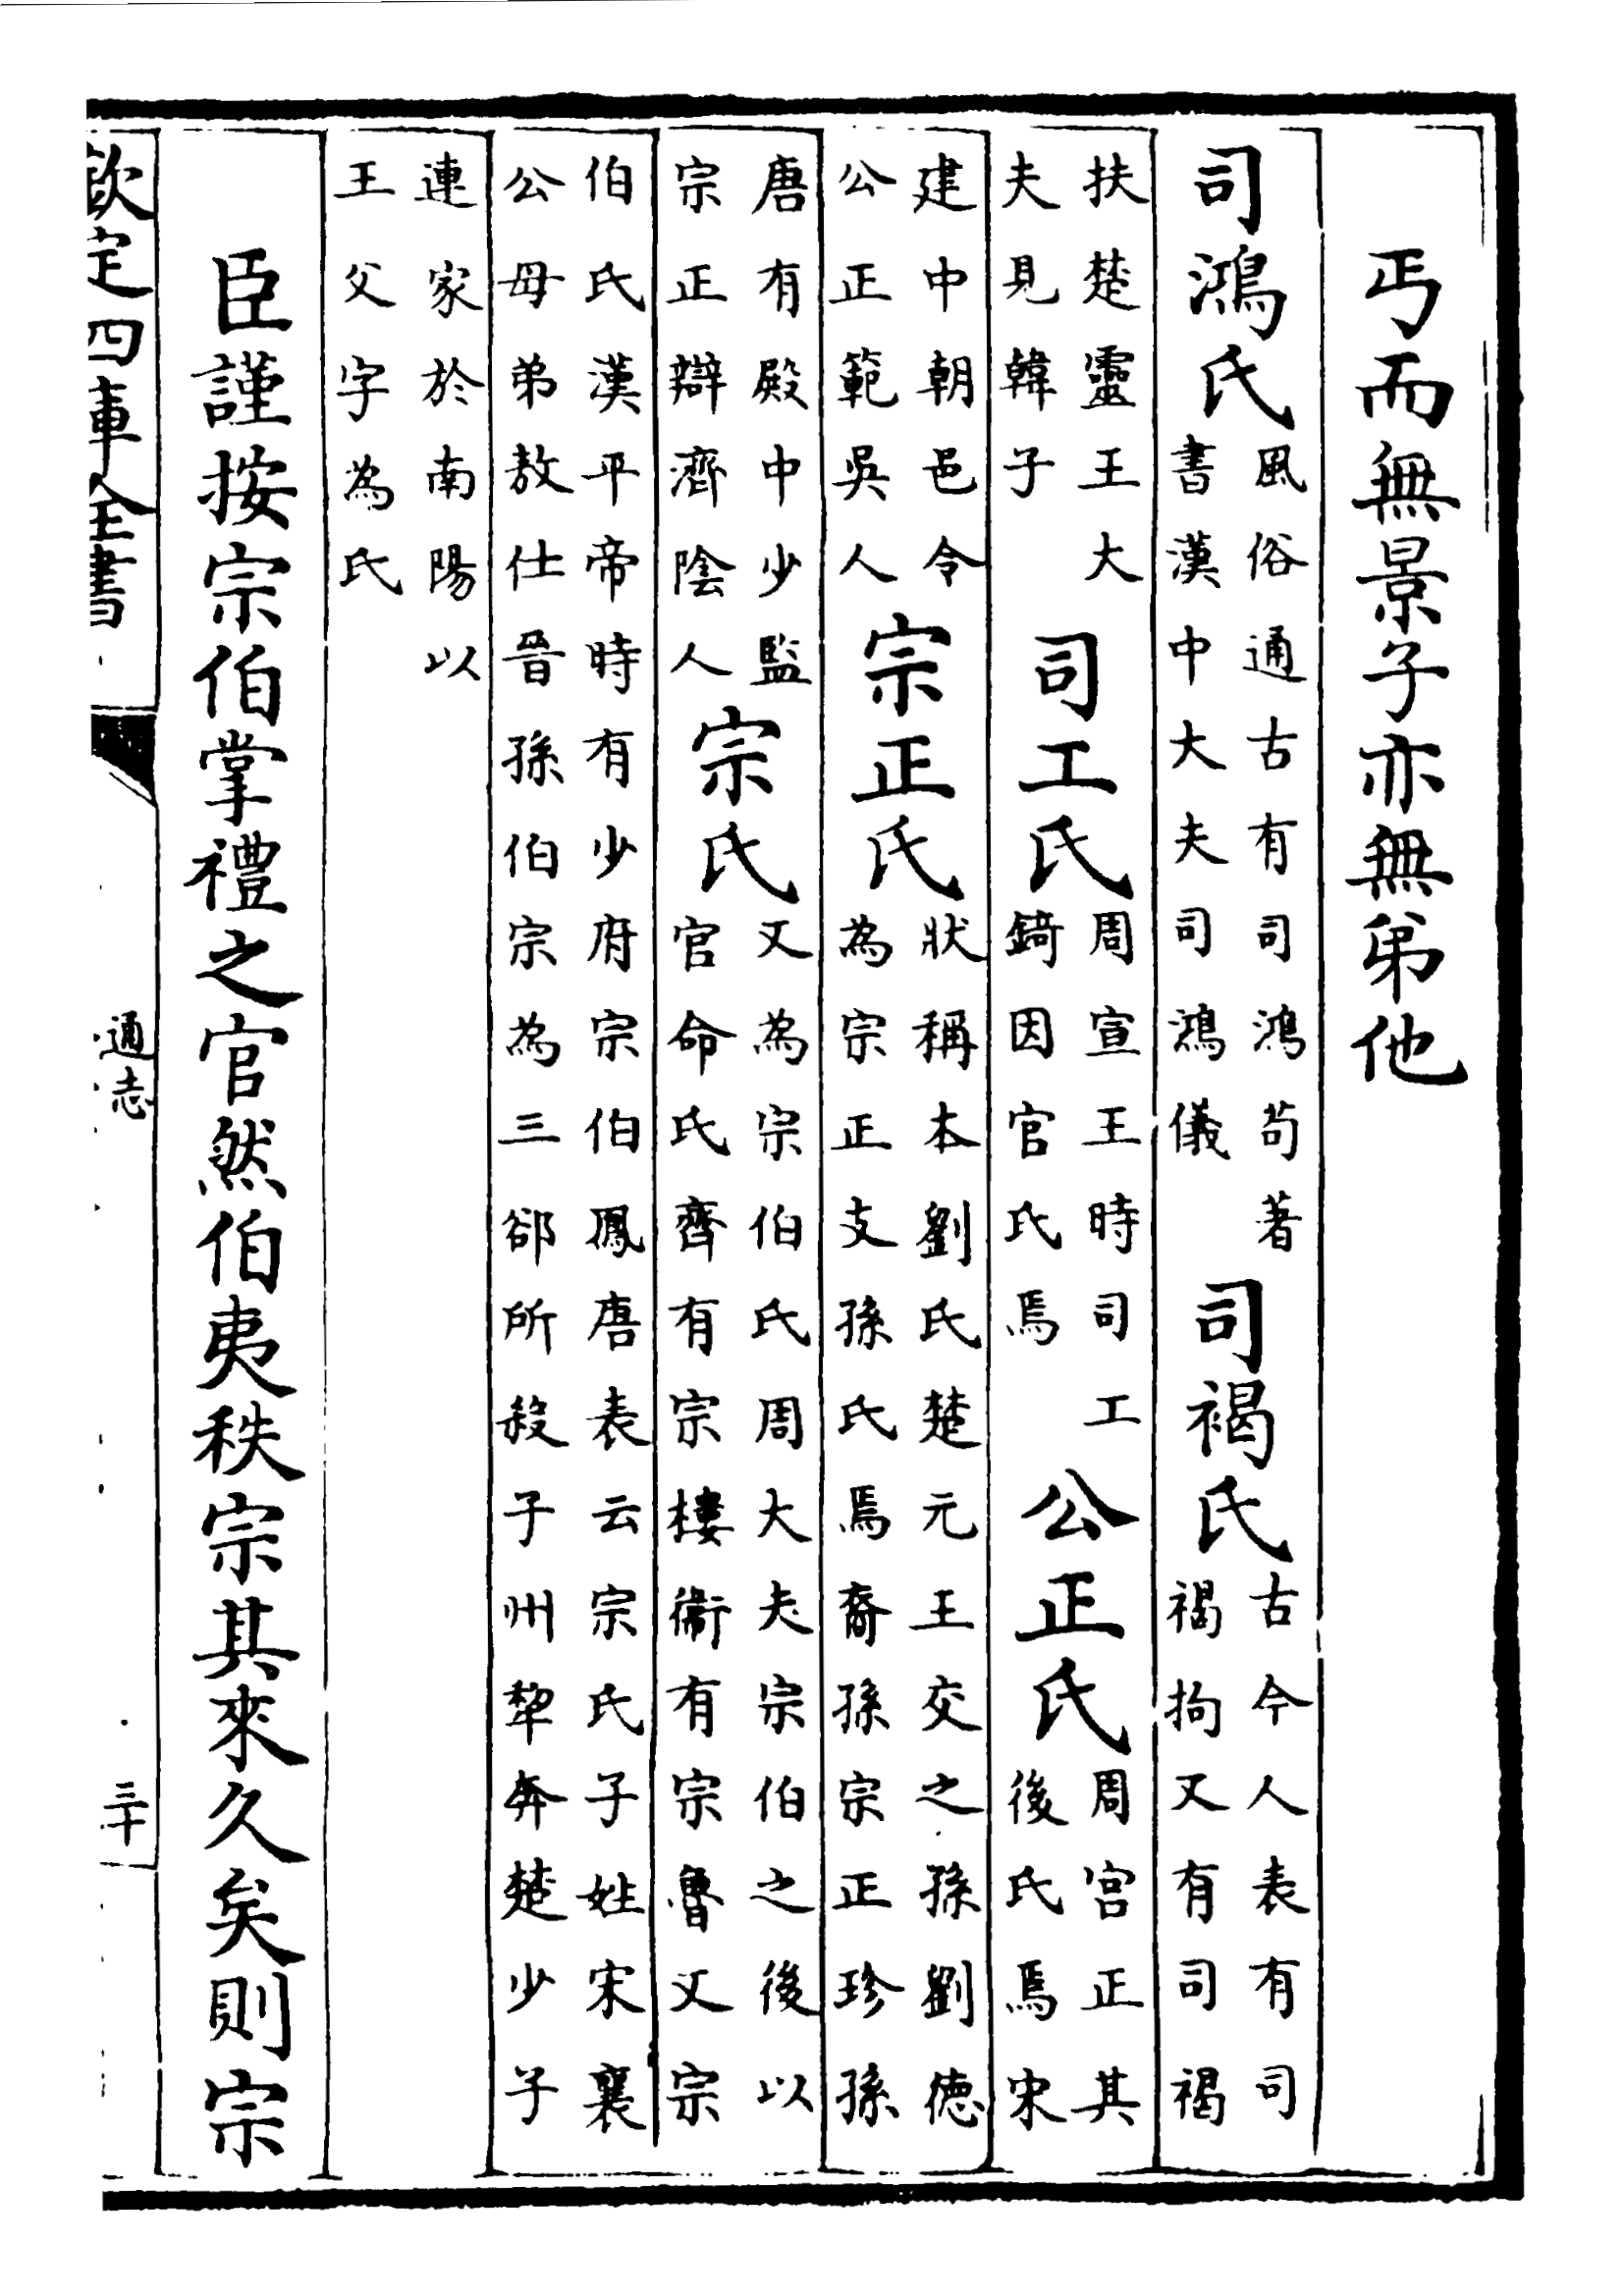 丐而無景子亦無弟他
司鴻氏
風俗通古有司鴻苟著
書漢中大夫司鴻儀
司褐氏
古今人表有司
褐拘又有司褐
扶楚靈王大
夫見韓子
司工氏
周宣王時司工
錡因官氏焉
公正氏
周宫正其
後氏焉宋
建中朝邑令
公正範吳人
宗正氏
狀稱本劉氏楚元王交之孫劉德
為宗正支孫氏焉裔孫宗正珍孫
唐有殿中少監
宗正辯濟隂人
宗氏
又為宗伯氏周大夫宗伯之後以
官命氏齊有宗樓衞有宗魯又宗
伯氏漢平帝時有少府宗伯鳳唐表云宗氏子姓宋襄
公母弟敖仕晉孫伯宗為三郤所殺子州犂奔楚少子
連家於南陽以
王父字為氏
臣謹按宗伯掌禮之官然伯夷秩宗其來久矣則宗
欽定四庫全書
通志
三十